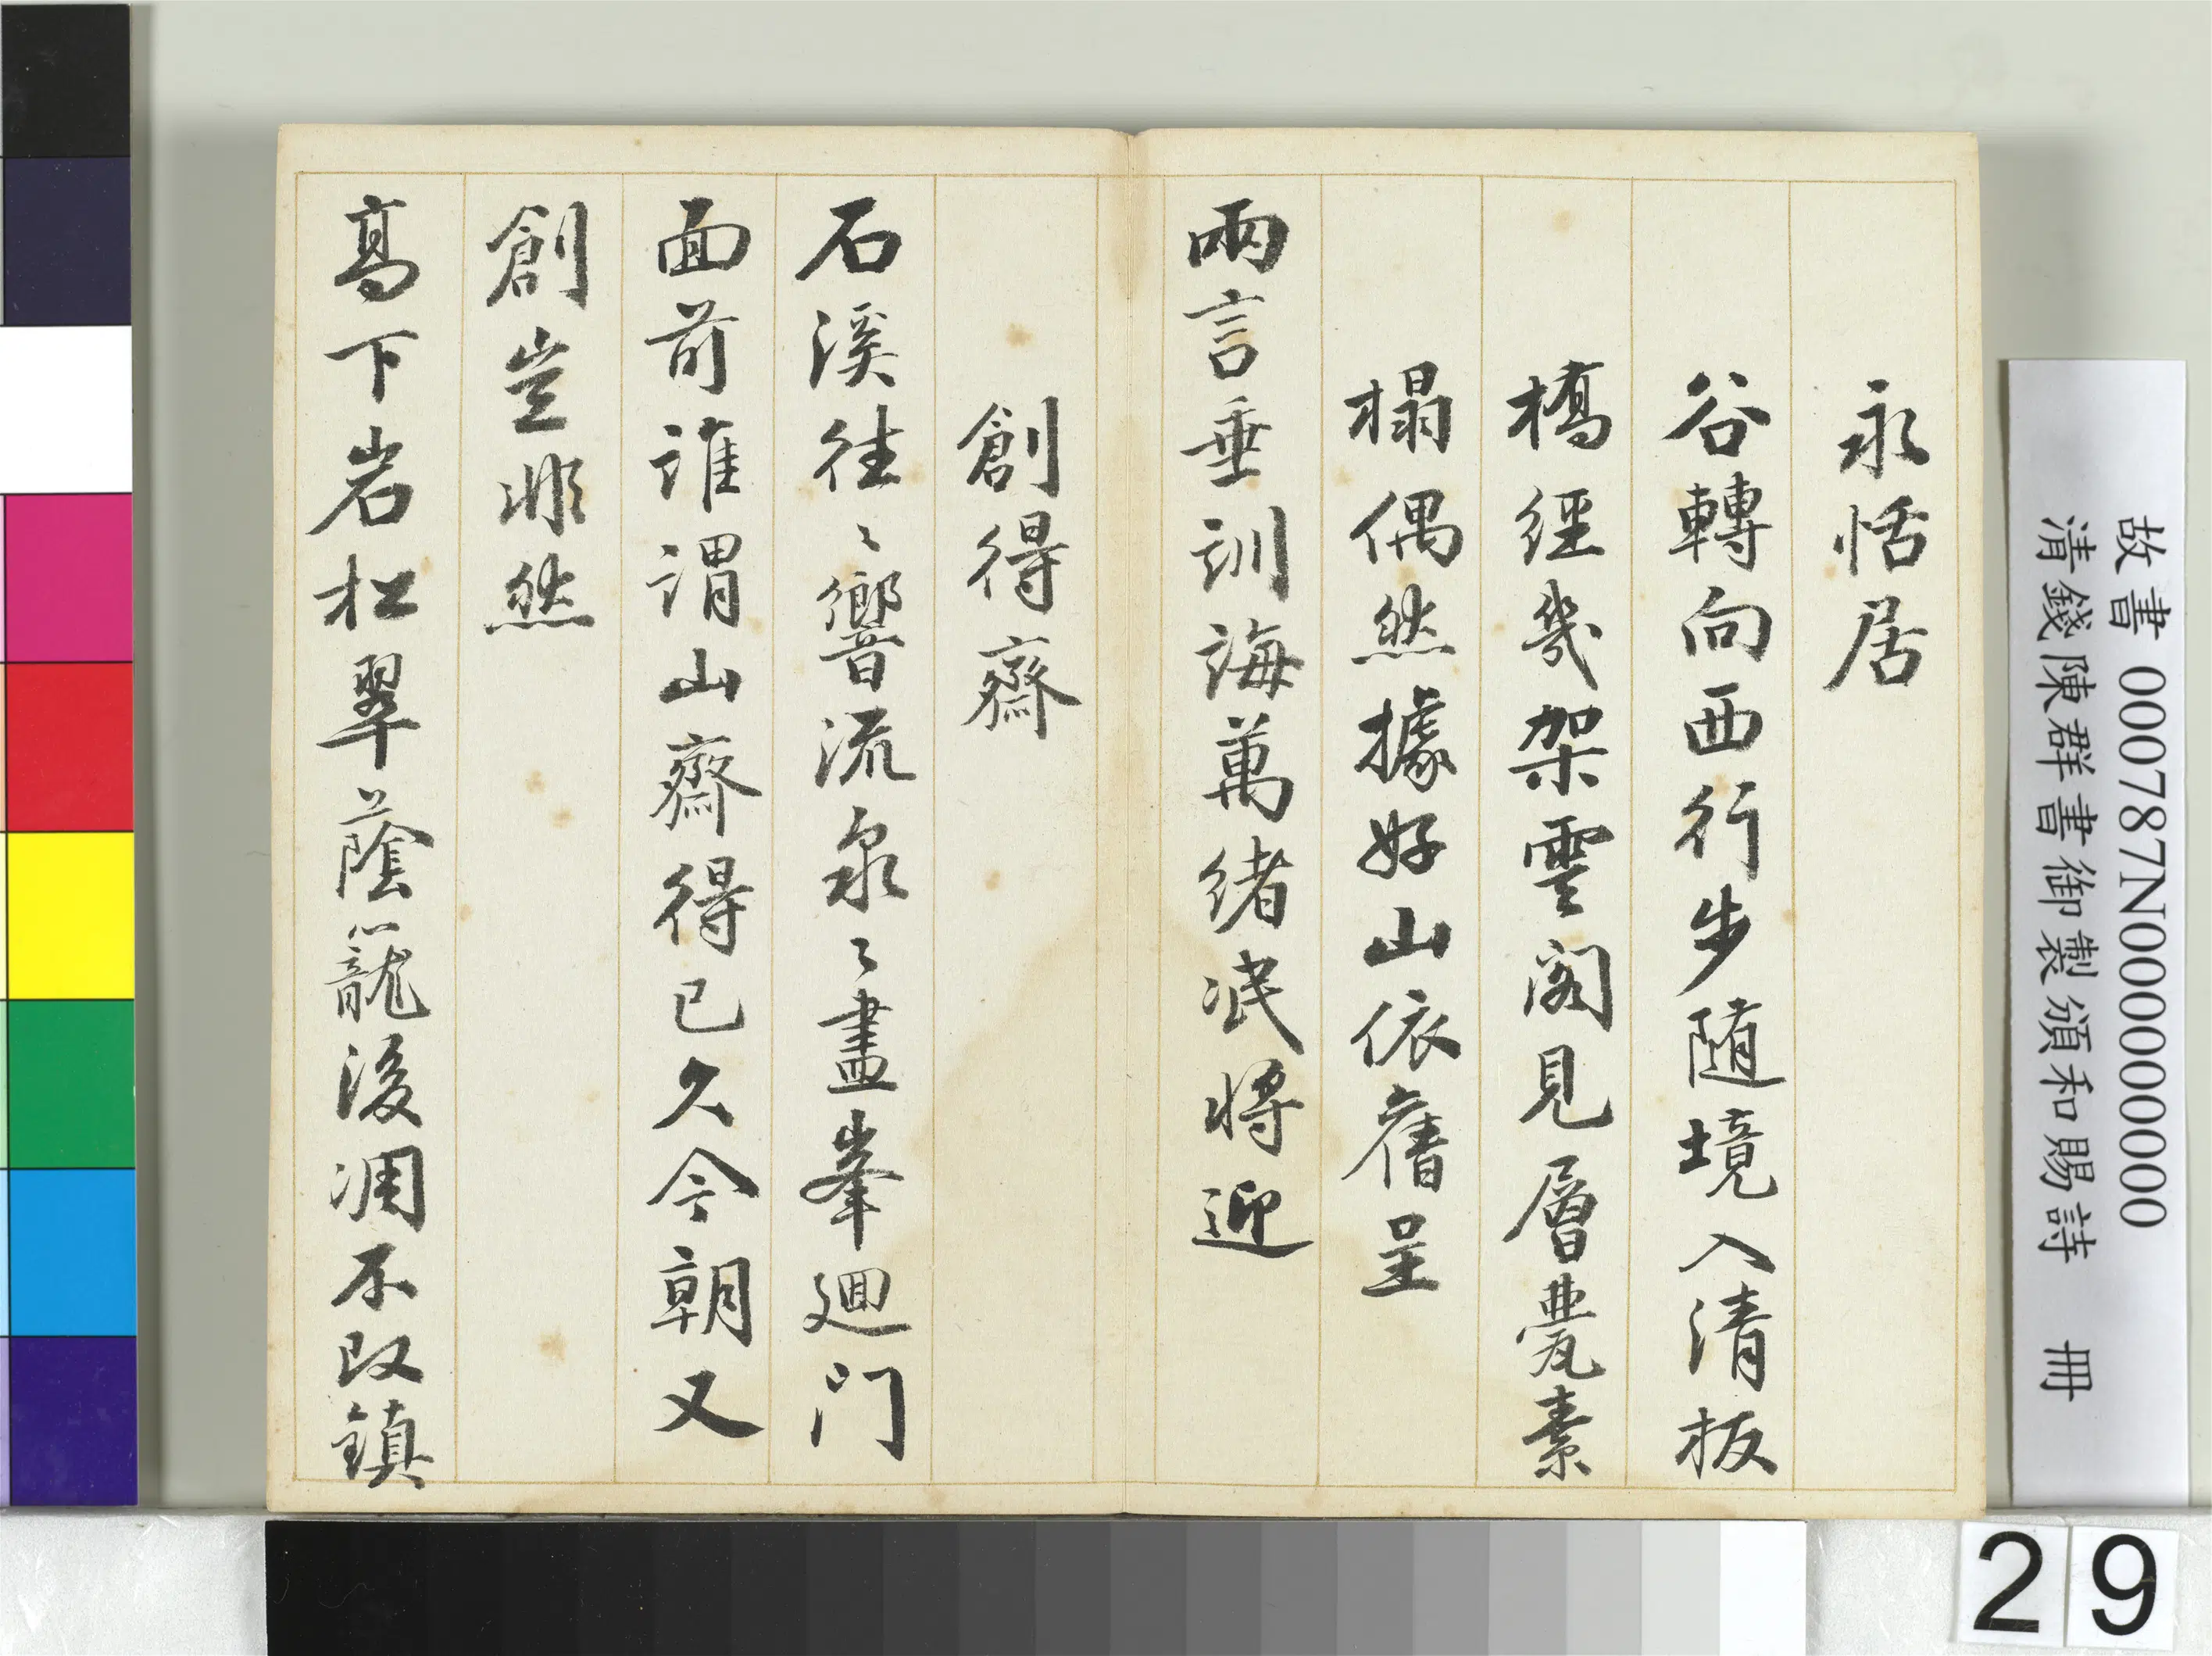 永恬居
谷轉向西行步随境入清板
橋經幾架雲閣見層甍素
榻偶然據好山依舊呈
兩言垂訓誨萬緒泯將迎
創得齋
石溪往〻響流泉〻盡峯廻门
面前誰謂山齋得已久今朝又
創豈非然
高下岩松翠蔭籠後凋不改鎮
故書 000787N000000000
清錢陳群書御製頒和賜詩 冊
29